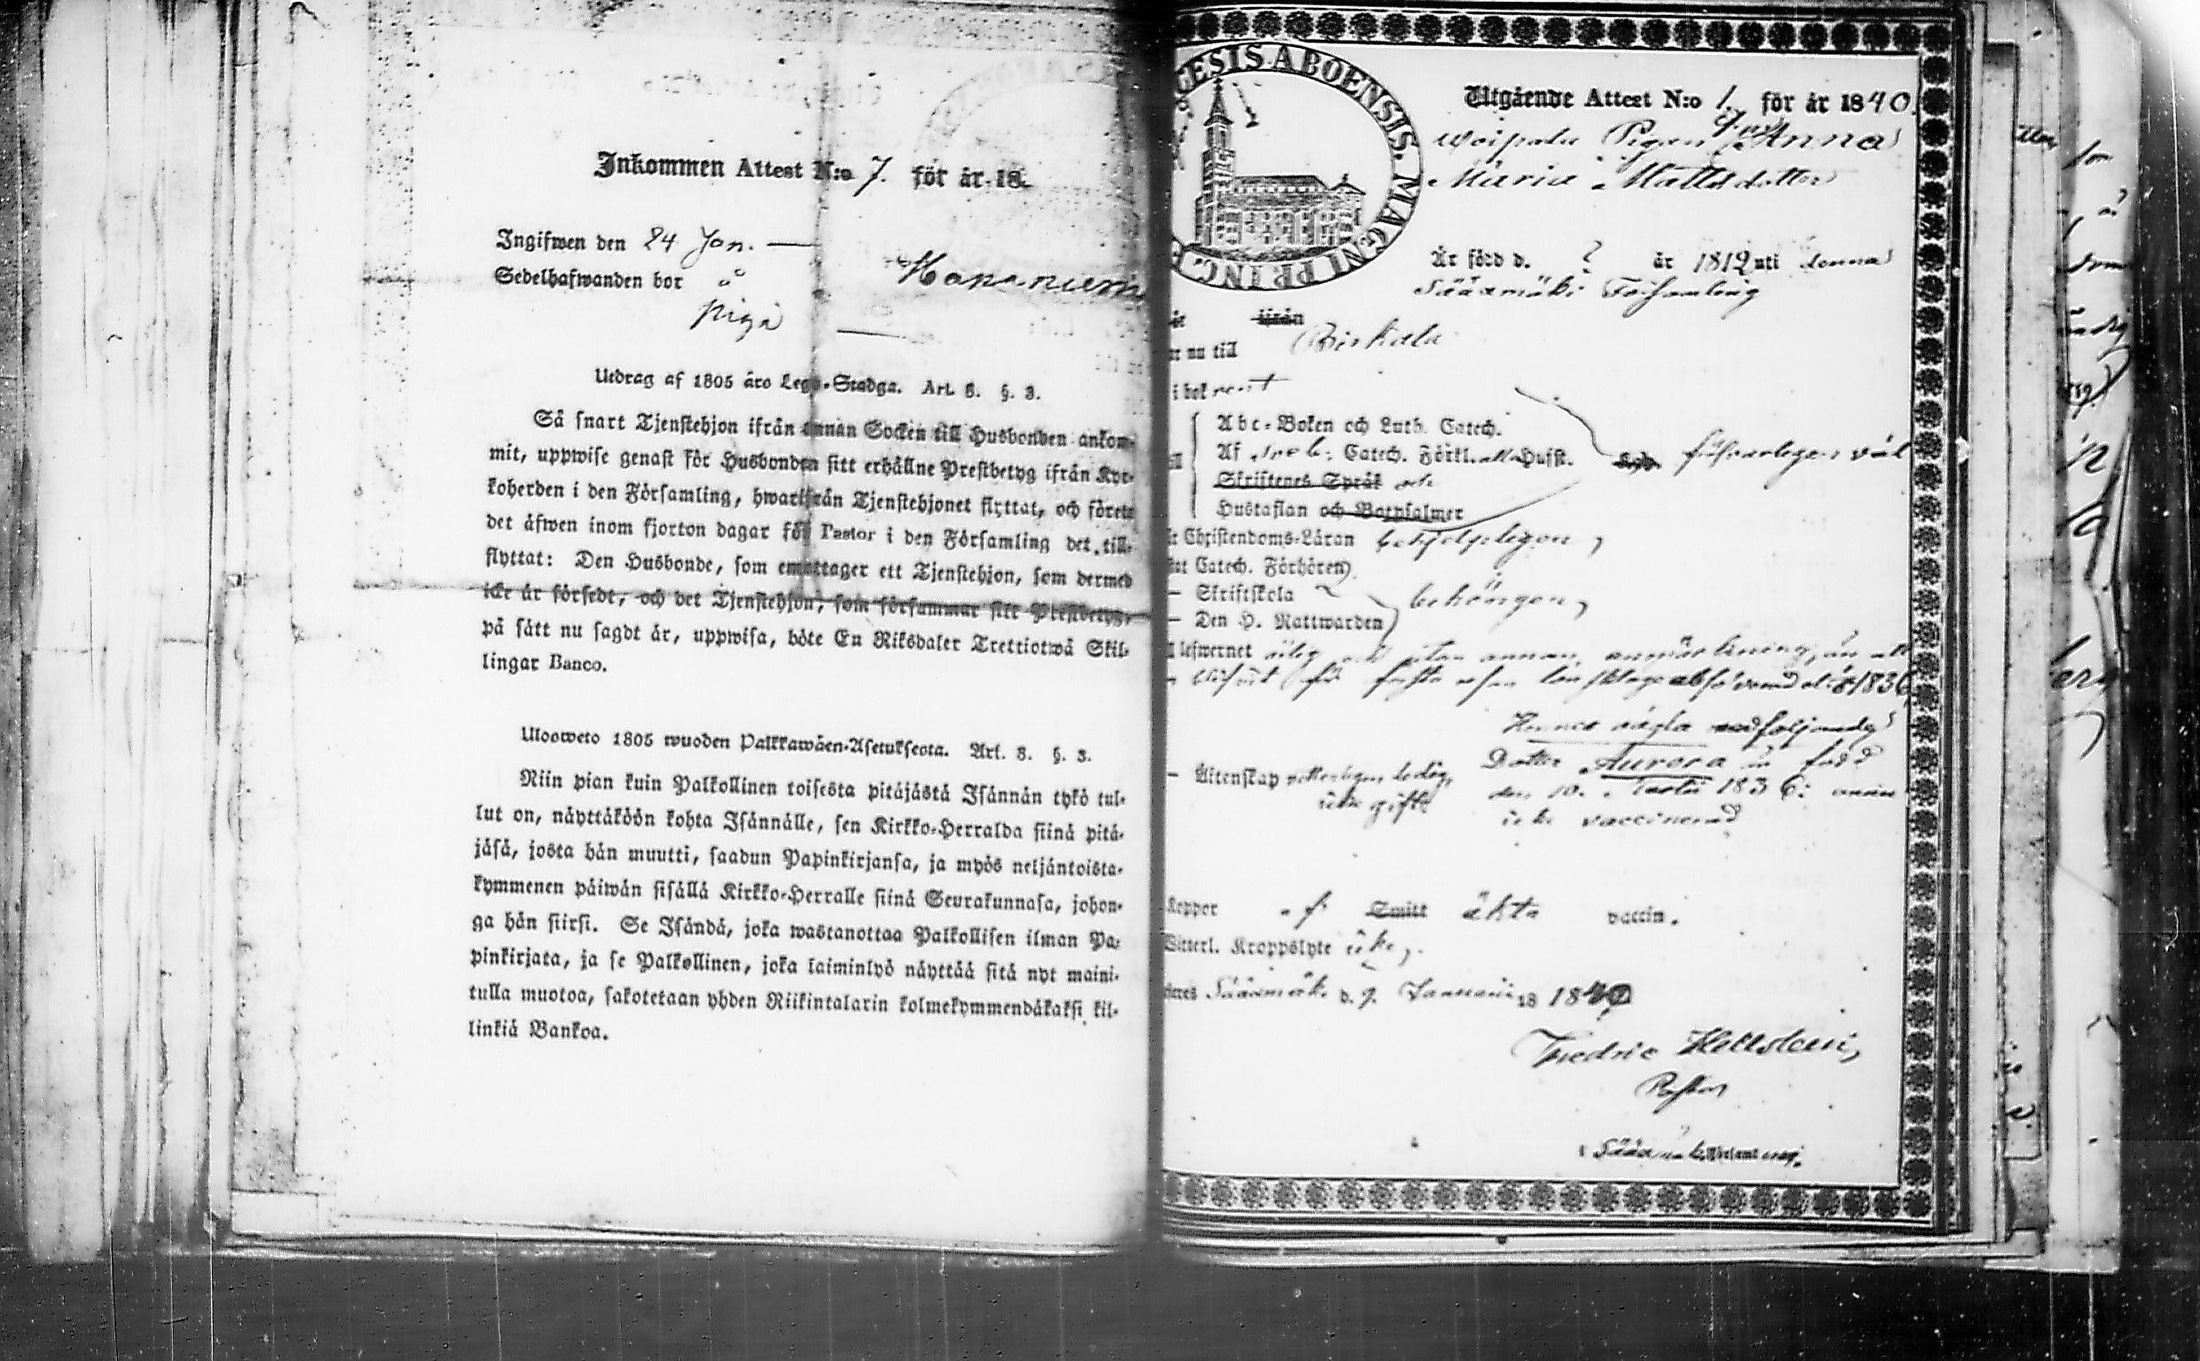 Inkommen Attest N:o 7. för år 18
Ingifwen den 24 Jan. —
Sedelhafwanden bor å Haraniemi
piga —
Utdrag af 1805 års Lego-Stadga. Art. 8. §. 3.
Så snart Tjenstehjon ifrån annan Socken till Husbonden ankom-
mit, uppwise genast för Husbonden sitt erhållne Prestbetyg ifrån Kyr-
koherden i den Församling, hwarifrån Tjenstehjonet flyttat, och förete
det äfwen inom fjorton dagar för Pastor i den Församling det till-
flyttat: Den Husbonde, som emottager ett Tjenstehjon, som dermed
icke är försedt, och det Tjenstehjon, som försummar sitt Prestbetyg,
på sätt nu sagdt är, uppwisa, böte En Riksdaler Trettiotwå Skil-
lingar Banco.
Uloosweto 1805 wuoden Palkkawäen-Asetuksesta. Art. 8. §. 3.
Niin pian kuin Palkollinen toisesta pitäjästä Isännän tykö tul-
lut on, näyttäköön kohta Isännälle, sen Kirkko-Herralda siinä pitä-
jäsä, josta hän muutti, saadun Papinkirjansa, ja myös neljäntoista-
kymmenen päiwän sisällä Kirkko-Herralle siinä Seurakunnasa, johon-
ga hän siirsi. Se Isändä, joka wastanottaa Palkollisen ilman Pa-
pinkirjata, ja se Palkollinen, joka laiminlyö näyttää sitä nyt maini-
tulla muotoa, sakotetaan yhden Riikintalarin kolmekymmendäkaksi kil-
linkiä Bankoa.
CESIS ABOENSIS. MAGNI PRINC.
Utgående Attest N:o 1. för år 1840.
Pigan Anna
Maria Mattsdotter
Är född d. ? år 1812 uti denna
Sääxmäki Församling
ifrån
nu till Birkala
i bok rent
Abc-Boken och Luth. Catech.
Af Sveb: Catech. Förkl. Husst. försvarligen väl
Skriftenes Språk och
Hustaflan och Botpsalmer
Christendoms-Läran behjelpligen,
Catech. Förhören
— Skriftskola behörigen,
— Den H. Nattwarden
lefwernet ärlig och utan annan anmärkning, än att
för första resan lönskläge absolverad år 1836
Hennes oägta medföljande
— Äktenskap ledig, Dotter Aurora är född
icke gift den 10. 1836: annu
icke vaccinerad
Koppor af Smitt äkta vaccin.
Witterl. Kroppslyte icke,.
Sääxmäki d. 9. Januarii 18 1840
Fredric Hellsten,
Pastor
i Sääxmäki Församling.